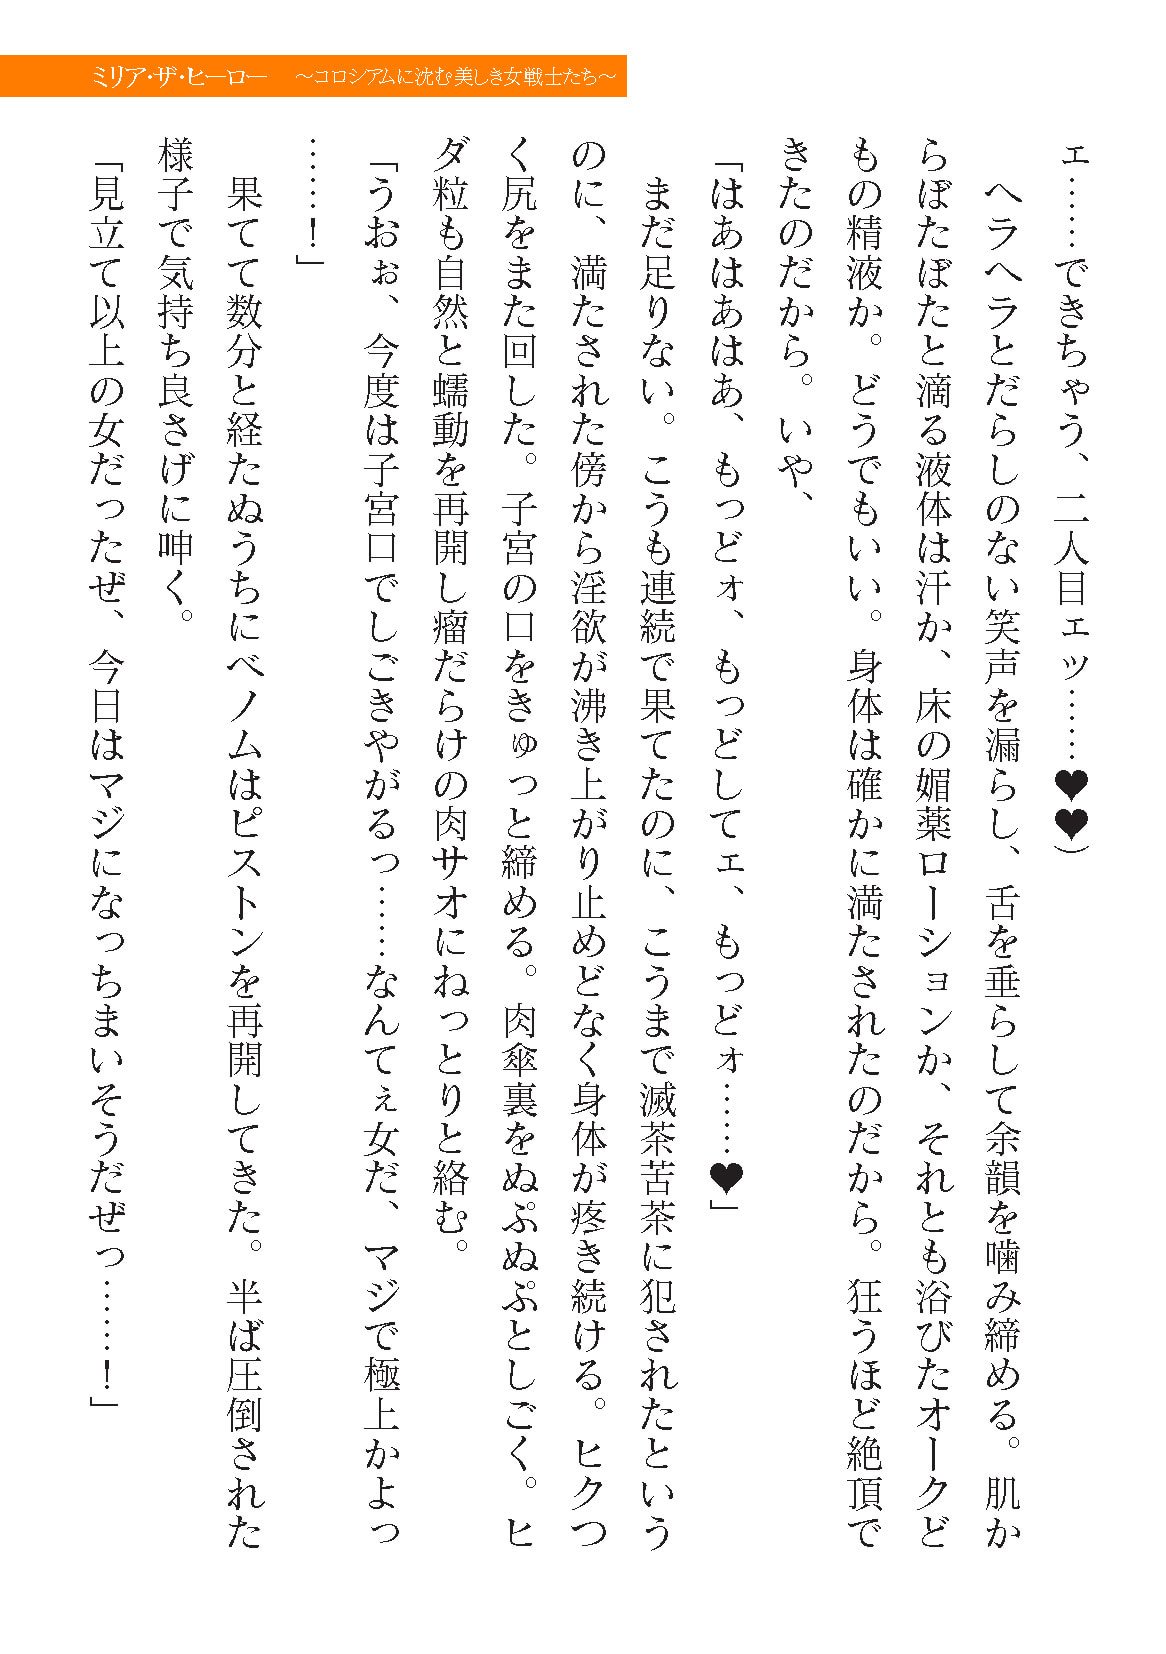 ミリア・ザ・ヒーロー　～コロシアムに沈む美しき女戦士たち～
ェ……できちゃう、二人目ェッ……♥♥）
　ヘラヘラとだらしのない笑声を漏らし、舌を垂らして余韻を噛み締める。肌か
らぼたぼたと滴る液体は汗か、床の媚薬ローションか、それとも浴びたオークど
もの精液か。どうでもいい。身体は確かに満たされたのだから。狂うほど絶頂で
きたのだから。いや、
「はあはあはあ、もっどォ、もっどしてェ、もっどォ……♥」
　まだ足りない。こうも連続で果てたのに、こうまで滅茶苦茶に犯されたという
のに、満たされた傍から淫欲が沸き上がり止めどなく身体が疼き続ける。ヒクつ
く尻をまた回した。子宮の口をきゅっと締める。肉傘裏をぬぷぬぷとしごく。ヒ
ダ粒も自然と蠕動を再開し瘤だらけの肉サオにねっとりと絡む。
「うおぉ、今度は子宮口でしごきやがるっ……なんてぇ女だ、マジで極上かよっ
……！」
　果てて数分と経たぬうちにベノムはピストンを再開してきた。半ば圧倒された
様子で気持ち良さげに呻く。
「見立て以上の女だったぜ、今日はマジになっちまいそうだぜっ……！」